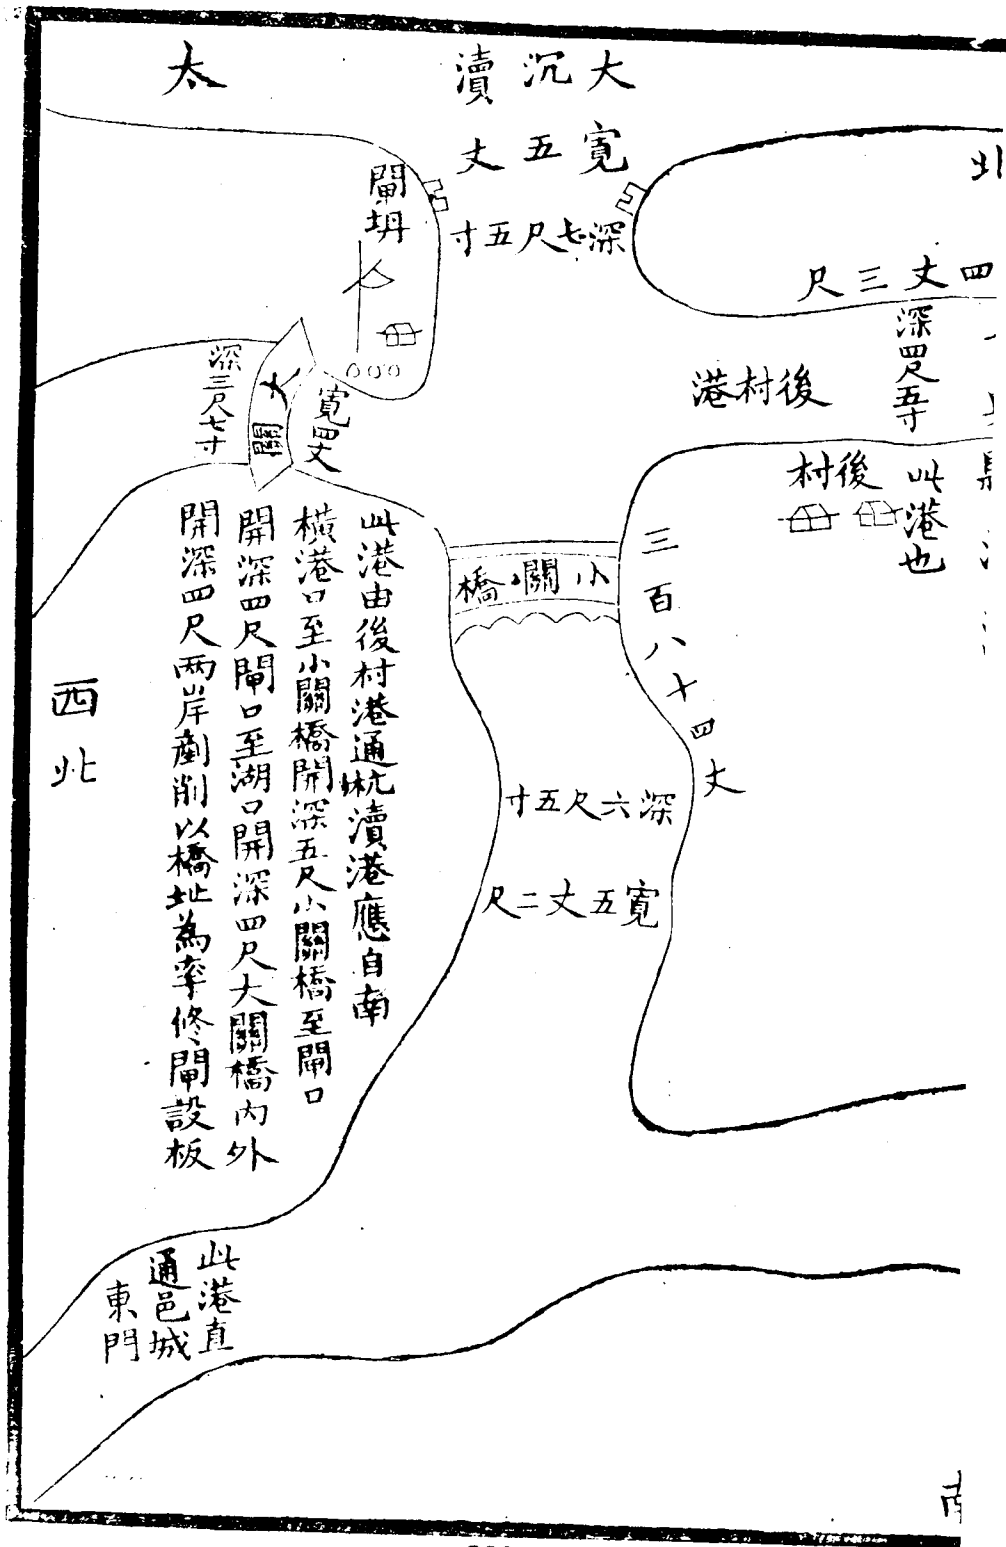 大沉瀆
寬五丈
深七尺五寸
太
北
四丈三尺
深四尺五寸
後村港
此港也
後村
閘坍
寬四丈
大關
深三尺七寸
小關橋
三百八十四丈
深六尺五寸
寬五丈二尺
此港由後村港通瀆港應自南
橫港口至小關橋開深五尺小關橋至閘口
開深四尺閘口至湖口開深四尺大關橋內外
開深四尺两岸剷削以橋址為率修閘設板
西北
此港直
通邑城
東門